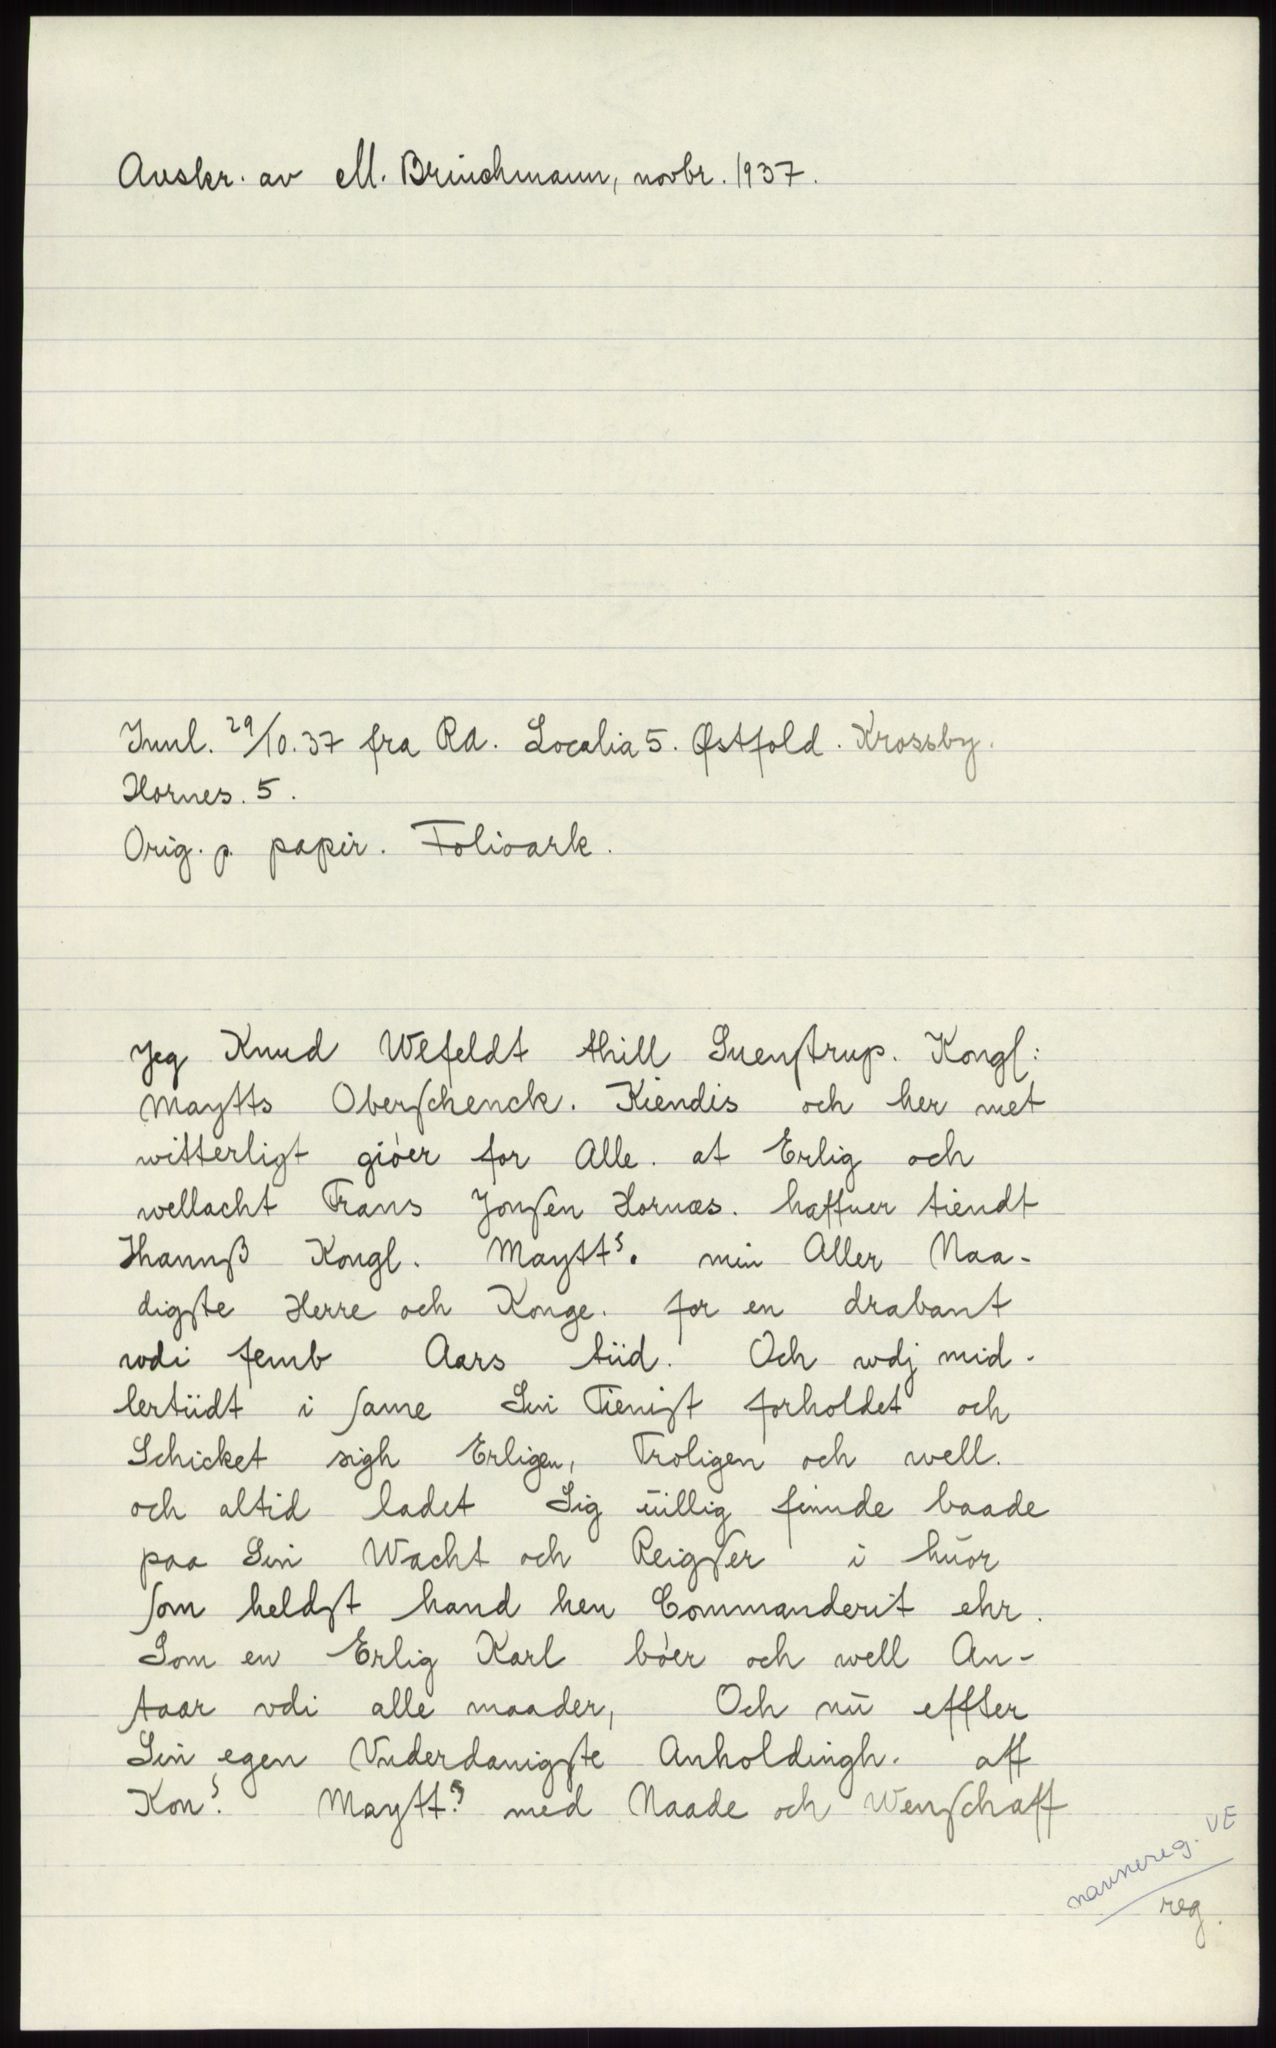 Avskr. av M. Brinchmann, novbr. 1937.
Innl. 29/10.37 fra RA. Localia 5. Østfold. Krossby.
Hornes. 5.
Orig. p. papir. Folioark.
Jeg Knud Wlfeldt thill Suenstrup. Kongl:
Maytts Oberschenck. Kiendis och her met
witterligt gióer for Alle. at Erlig och
wellacht Frans Jonsen Hornæs. haffuer tiendt
Hannß Kongl. Maytts. min Aller Naa-
digste Herre och Konge. for en drabant
wdi femb Aars tiid. Och wdj mid-
lertiidt i same Sin Tienist forholdet och
Schicket sigh Erligen, Troligen och well.
och altid ladet Sig uillig finde baade
paa Sin Wacht och Reigser i huor
som heldst hand hen Commanderit ehr.
Som en Erlig Karl bóer och well An-
taar vdi alle maader, Och nu effter
Sin egen Vnderdanigste Anholdingh. aff
Kons. Maytts. med Naade och Wenschaff
navnereg. VE
reg.